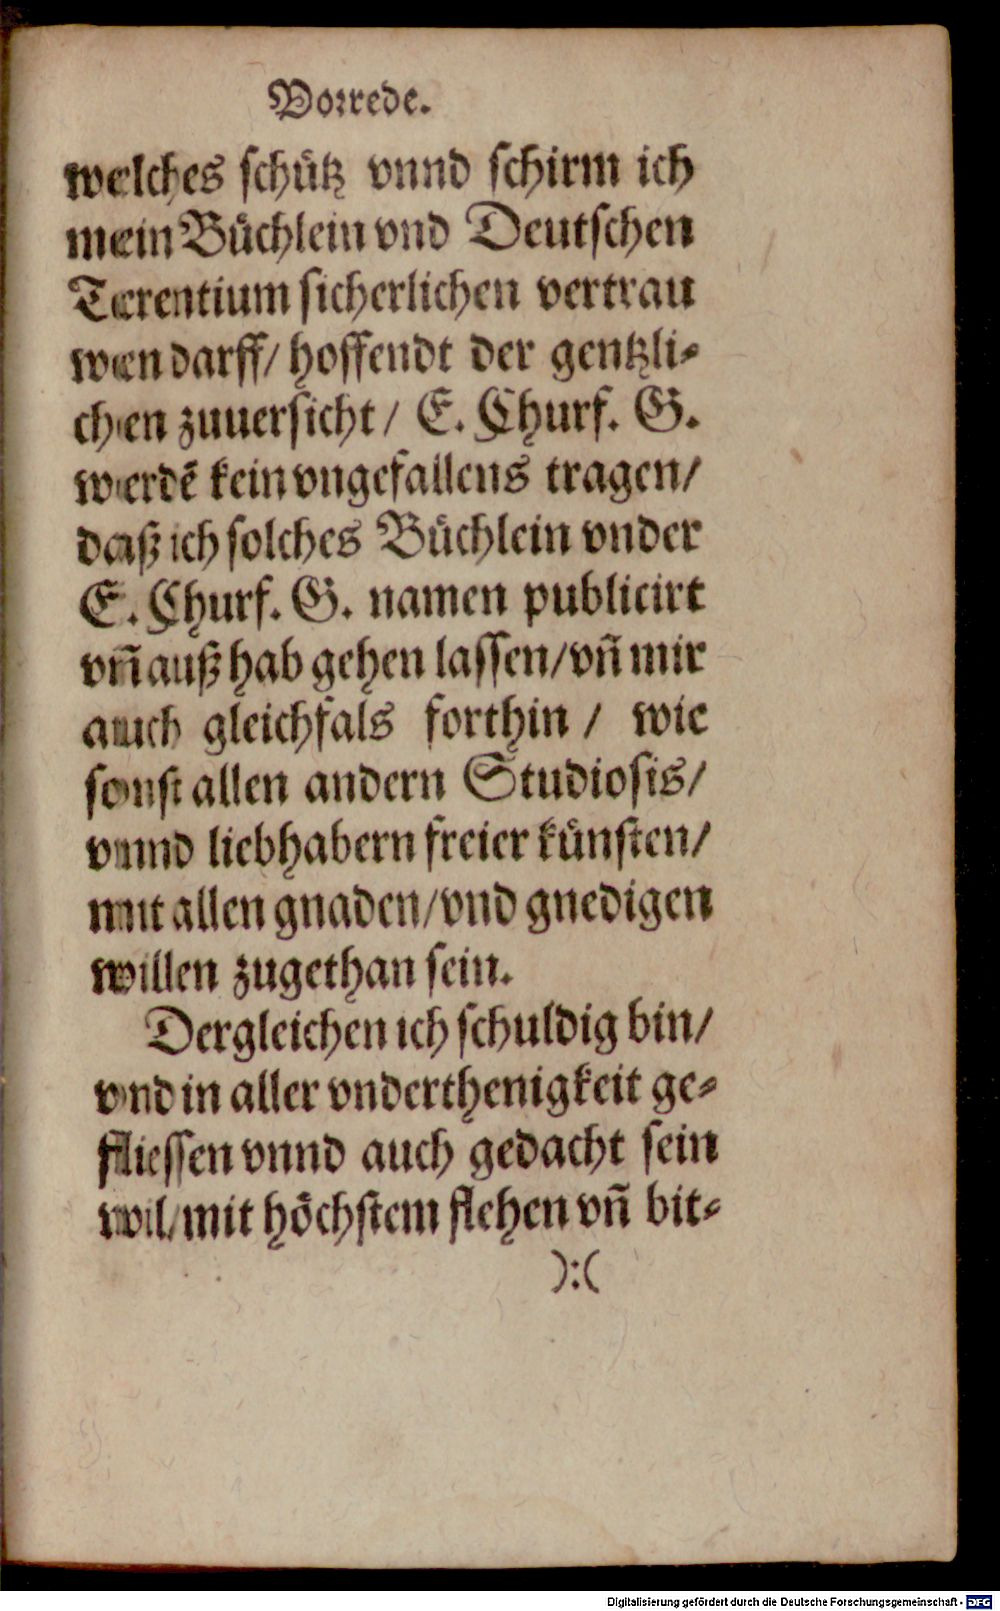 Vorrede.
welches schütz vnnd schirm ich
mein Büchlein vnd Deutschen
Terentium sicherlichen vertrau
wen darff/ hoffendt der gentzli⸗
chen zuuersicht/ E. Churf. G.
werdẽ kein vngefallens tragen/
daß ich solches Büchlein vnder
E. Churf. G. namen publicirt
vñ auß hab gehen lassen/ vñ mir
auch gleichfals forthin / wie
sonst allen andern Studiosis/
vnnd liebhabern freier künsten/
mit allen gnaden/ vnd gnedigen
willen zugethan sein.
Dergleichen ich schuldig bin/
vnd in aller vnderthenigkeit ge⸗
fliessen vnnd auch gedacht sein
wil/ mit höchstem flehen vñ bit⸗
):(
Digitalisierung gefördert durch die Deutsche Forschungsgemeinschaft - DFG